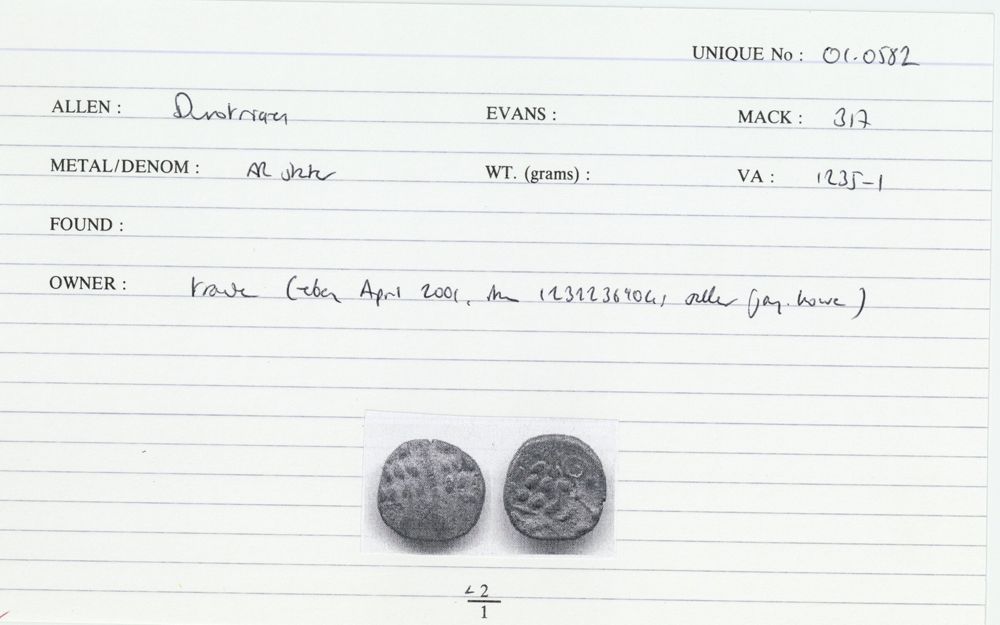 UNIQUE No : 01.0582
ALLEN : Durotrigan EVANS : MACK : 317
METAL/DENOM : AR stater WT. (grams) : VA : 1235-1
FOUND :
OWNER : trade (ebay April 2001, seller )
2
1